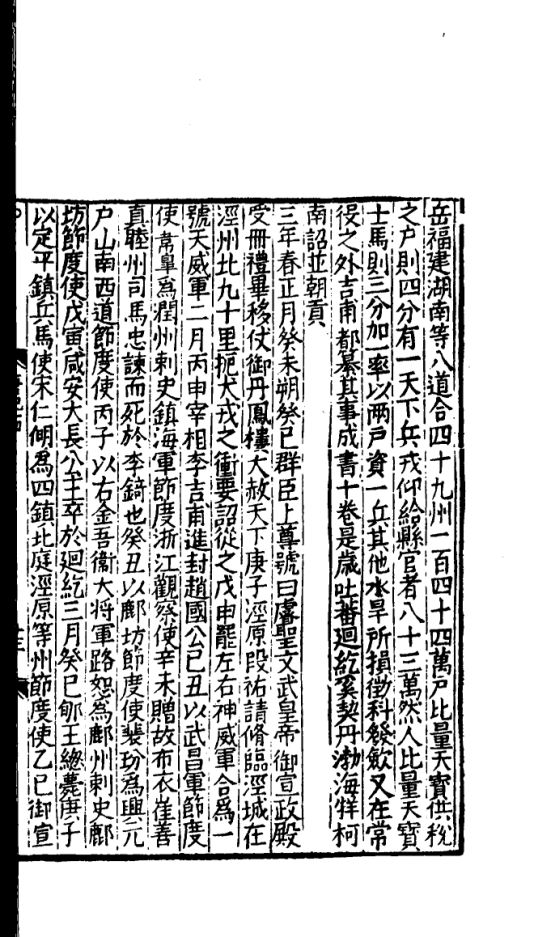 岳福建湖南等八道合四十九州一百四十四萬户比量天寶供稅
之户則四分有一天下兵戎仰給縣官者八十三萬然人比量天寶
士馬則三分加一率以两戶資一兵其他水旱所損徵科發斂又在常
役之外吉甫都纂其事成書十卷是歲吐蕃迴紇奚契丹渤海牂柯
南詔並朝貢
三年春正月癸未朔癸巳群臣上尊號曰睿聖文武皇帝御宣政殿
受冊禮畢移仗御丹鳳樓大赦天下庚子涇原段祐請脩臨涇城在
涇州北九十里扼犬戎之衝要詔從之戊申罷左右神威軍合爲一
號天威軍二月丙申宰相李吉甫進封趙國公己丑以武昌軍節度
使韋臯爲潤州刺史鎮海軍節度浙江觀察使辛未贈故布衣崔善
真睦州司馬忠諫而死於李錡也癸丑以鄜坊節度使裴玢爲興元
户山南西道節度使丙子以右金吾衞大将軍路恕爲鄜州刺史鄜
坊節度使戊寅咸安大長公主卒於迴紇三月癸巳郇王總薨庚子
以定平鎮兵馬使宋仁爲四鎮北庭涇原等州節度使乙巳御宣